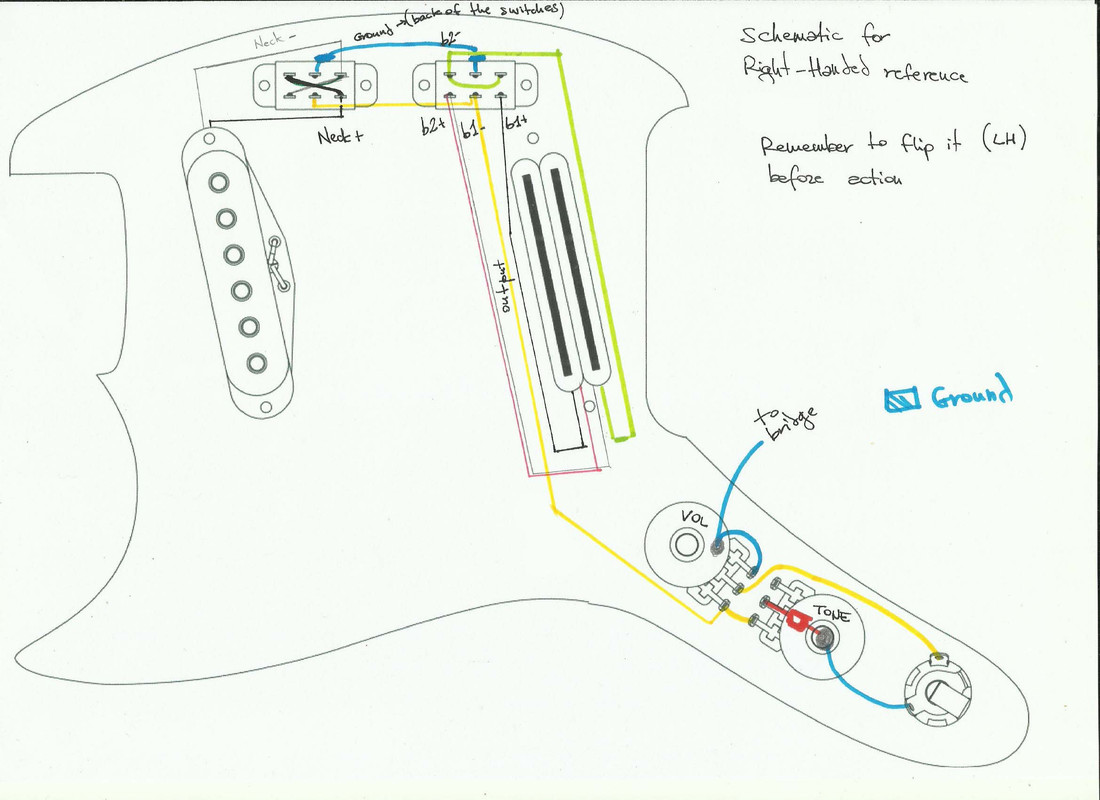 Ground → (back of the switches)
Neck -
b2-
Neck +
b2+
b1-
b1+
output
Schematic for
Right-Handed reference
Remember to flip it (LH)
before action
Ground
to
bridge
VOL
TONE